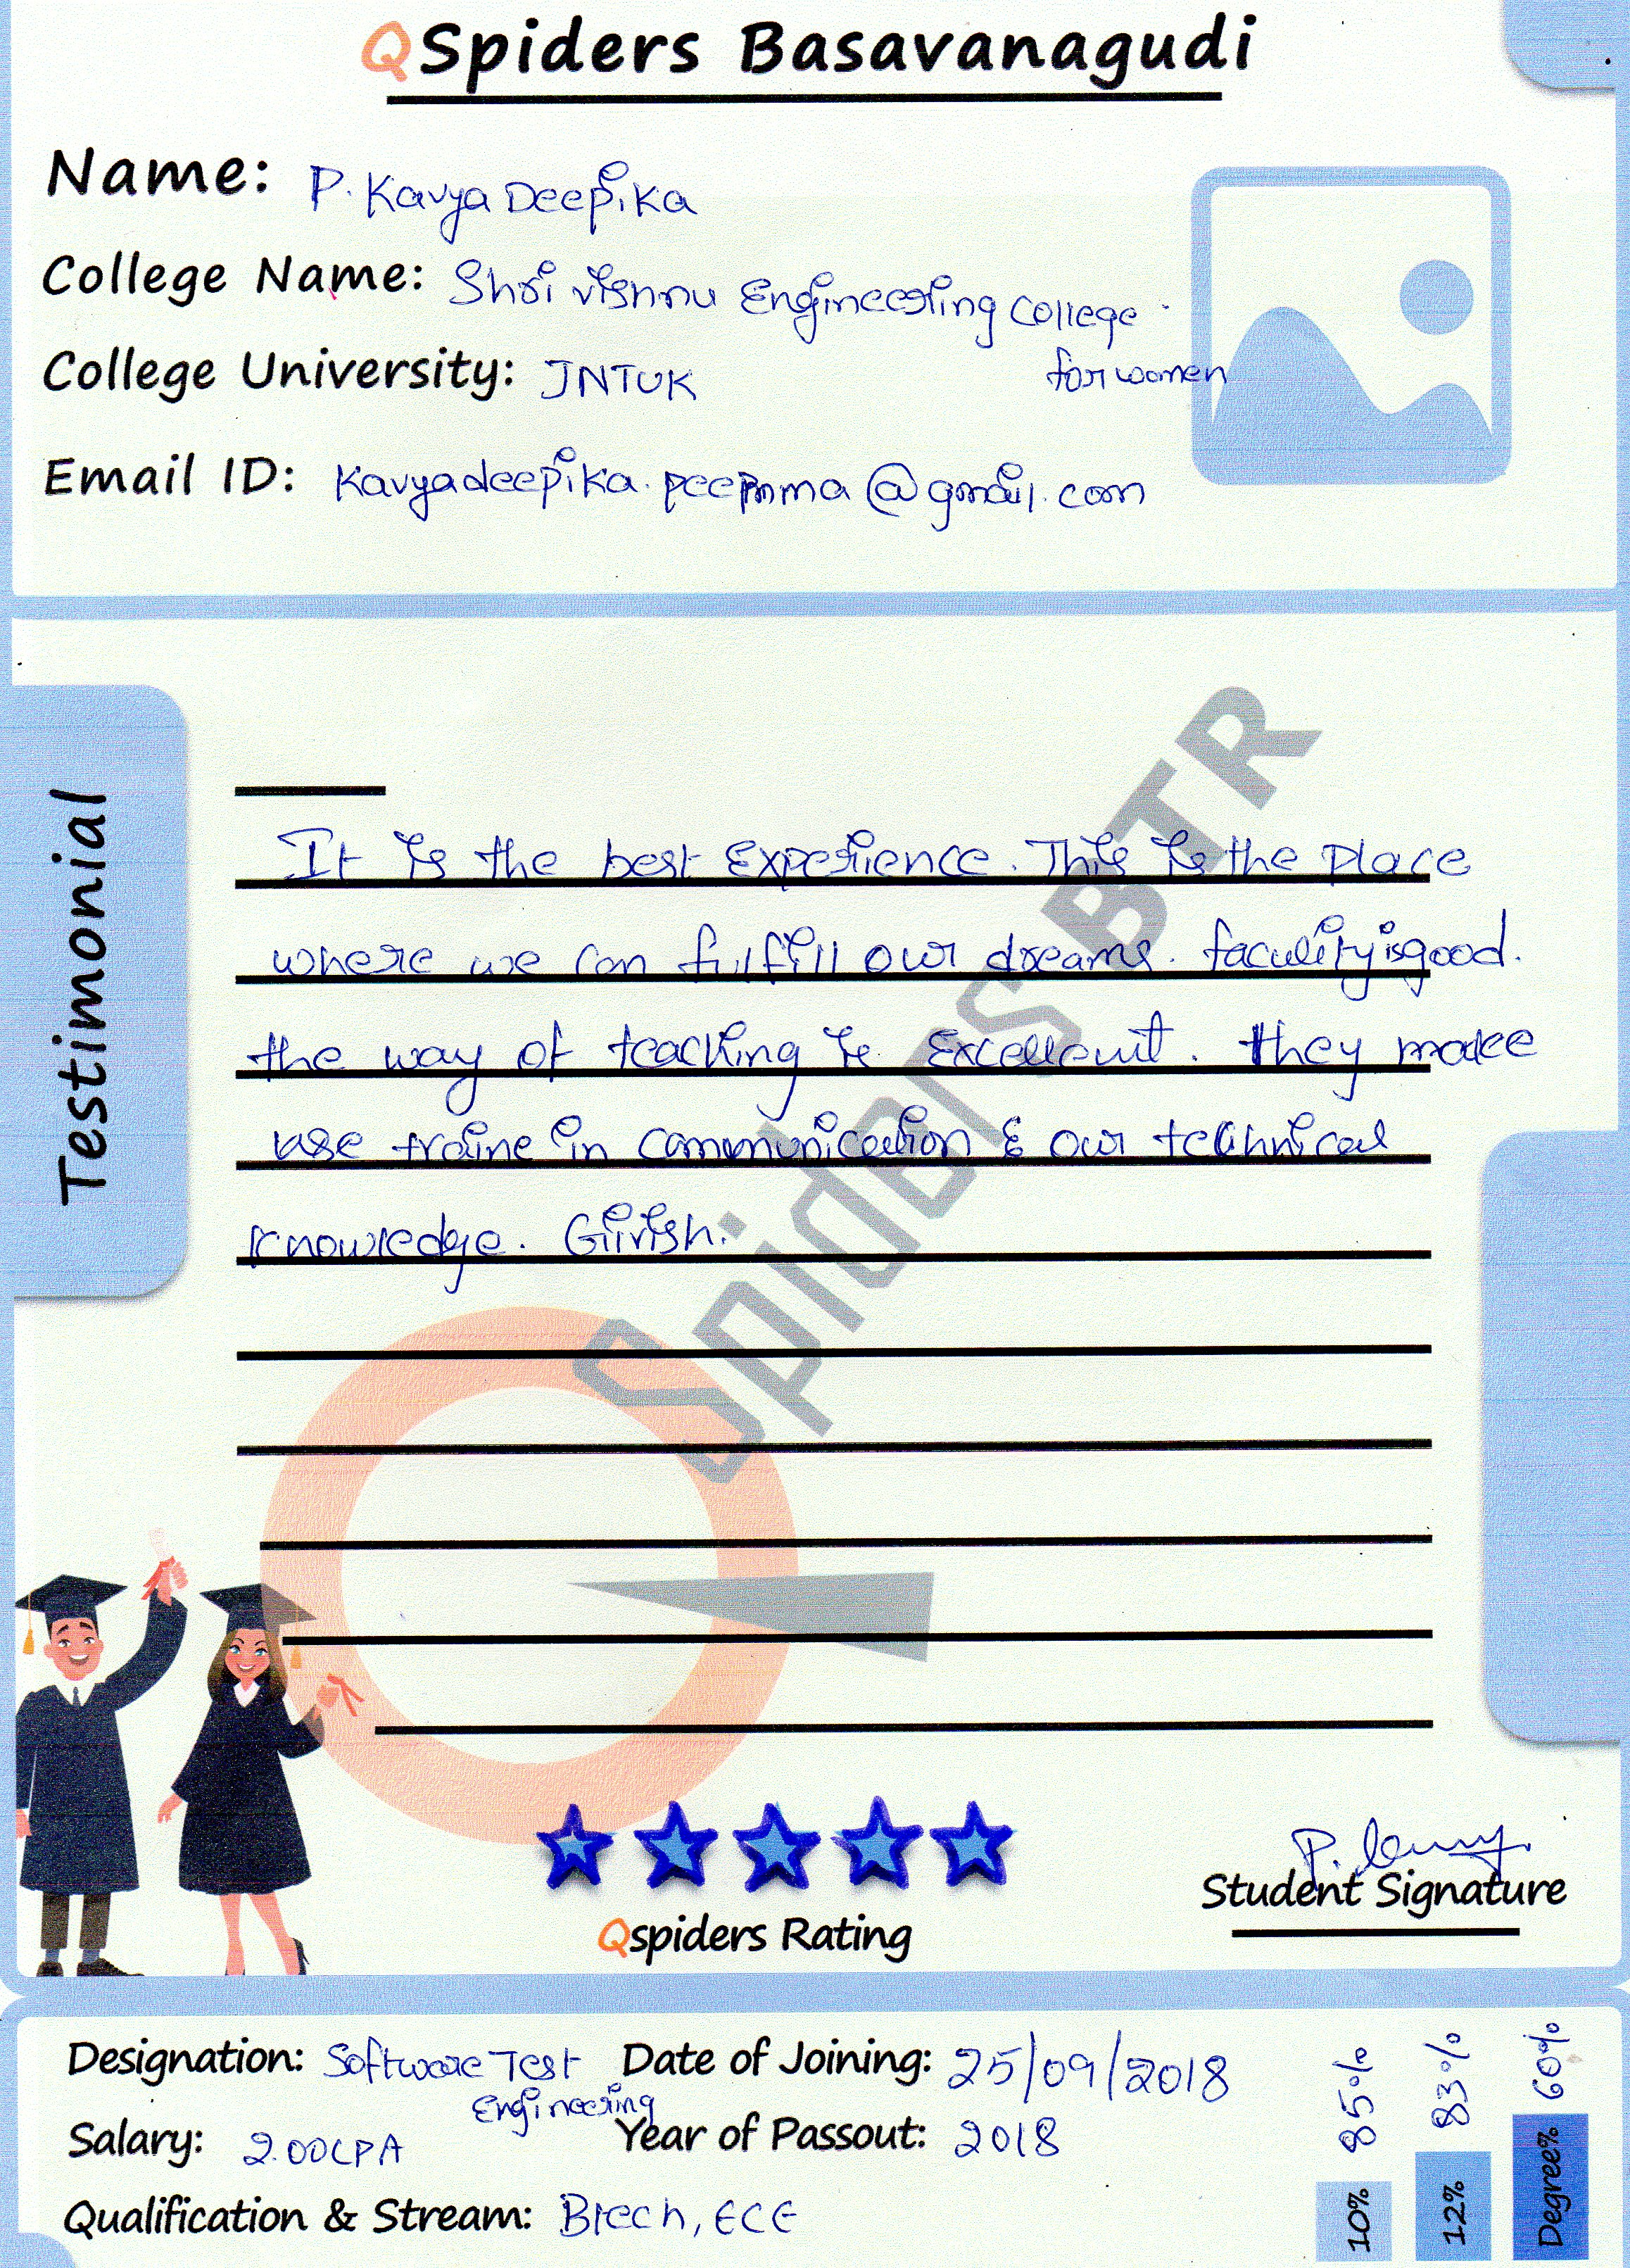 QSpiders Basavanagudi
Name: P. Kavya Deepika
College Name: Shri vishnu Engineering College
for women
College University: JNTUK
Email ID: @gmail.com
Testimonial
It is the best Experience. This is the place
where we can fulfill our dreams. faculity is good.
the way of teaching is Excellent. they make
use traine in communication & our technical
knowledge. Girish.
QSpiders BTR
Qspiders Rating
P.
Student Signature
Designation: Software Test Engineering
Date of Joining: 25/09/2018
Salary: 2.00LPA
Year of Passout: 2018
Qualification & Stream: Btech, ECE
10% 85%
12% 83%
Degree% 60%